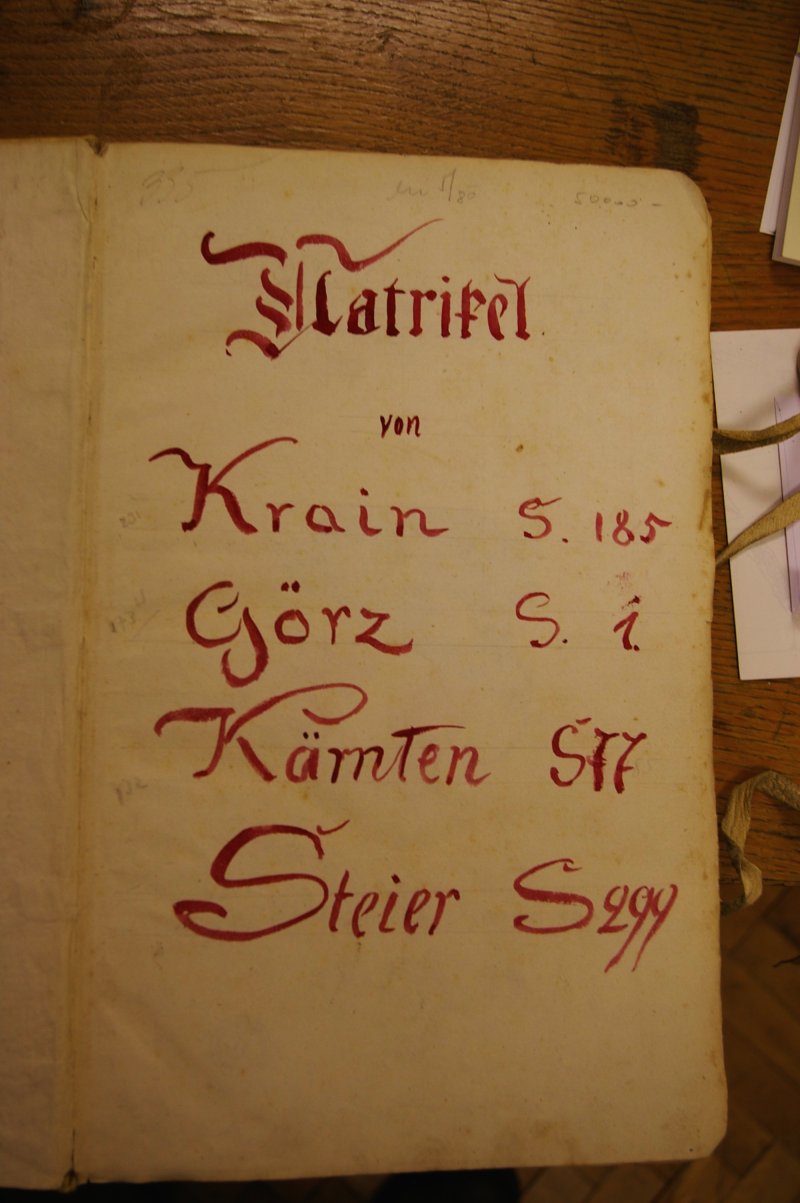 335
50000 -
Matrikel
von
Krain S. 185
Görz S. 1.
Kärnten S 77
Steier S 299